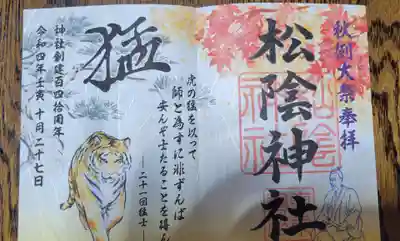 秋例大祭奉拝
松陰神社
虎の猛を以って
師と為すに非ずんば
安んぞ士たることを得ん
―二十一回猛士―
猛
神社創建百四拾周年
令和四年壬寅 十月二十七日